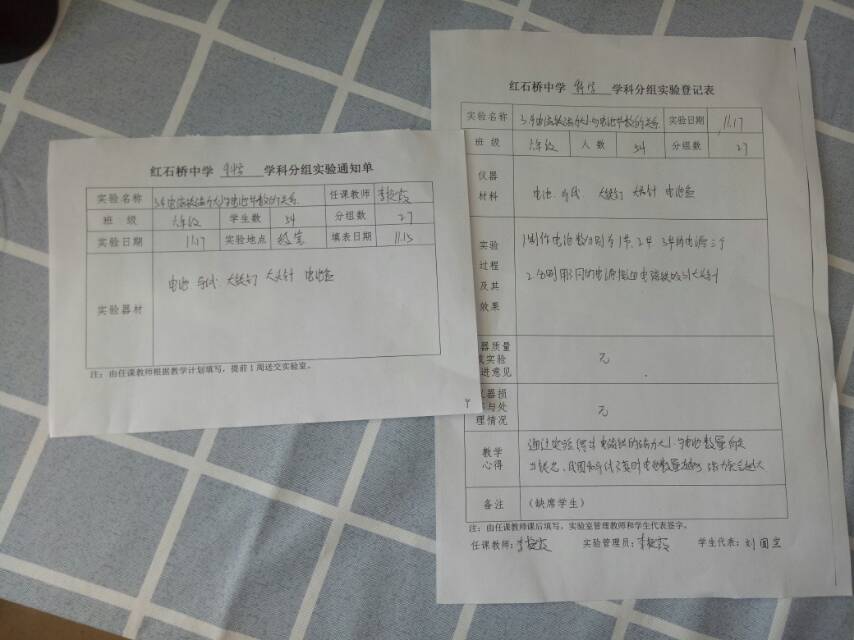 红石桥中学 科学 学科分组实验通知单
实验名称 3.4电磁铁磁力大小与电池节数的关系 任课教师
班 级 六年级 学生数 54 分组数 27
实验日期 11.17 实验地点 教室 填表日期 11.13
实验器材 电池 导线 大铁钉 大头针 电池盒
注:由任课教师根据教学计划填写,提前1周送交实验室。
红石桥中学 科学 学科分组实验登记表
实验名称 3.4电磁铁磁力大小与电池节数的关系 实验日期 11.17
班 级 六年级 人 数 54 分组数 27
仪器
材料
电池 导线 大铁钉 大头针 电池盒
实验
过程
及其
效果
1制作电池数分别为1节、2节、3节的电源三个
2.分别用不同的电源接通电磁铁吸引大头针
器质量
实验
进意见
无
器损
与处
理情况
无
教学
心得
通过实验得出电磁铁的磁力大小与电池数量有关
备注 (缺席学生)
注:由任课教师课后填写,实验室管理教师和学生代表签字。
任课教师: 实验管理员: 学生代表:刘国宝